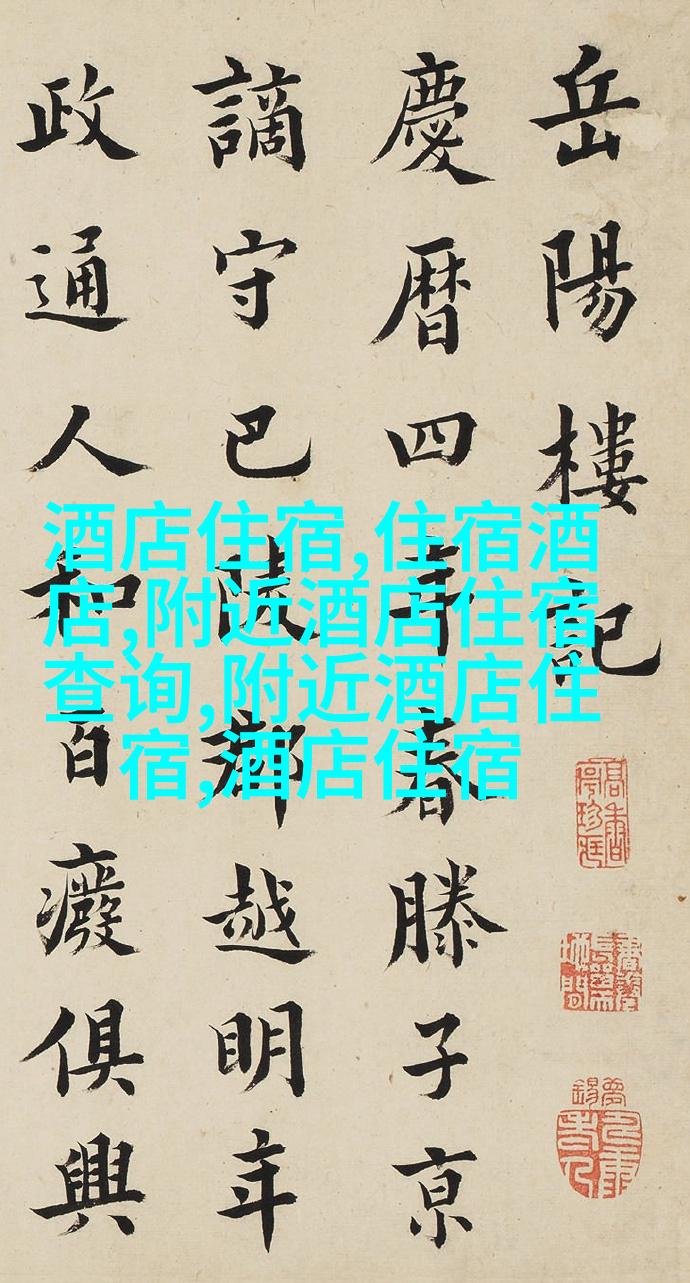 岳陽樓記
慶曆四年春滕子京
謫守巴陵郡越明年
政通人和百癈俱興
酒店住宿,住宿酒
店,附近酒店住宿
查询,附近酒店住
宿,酒店住宿